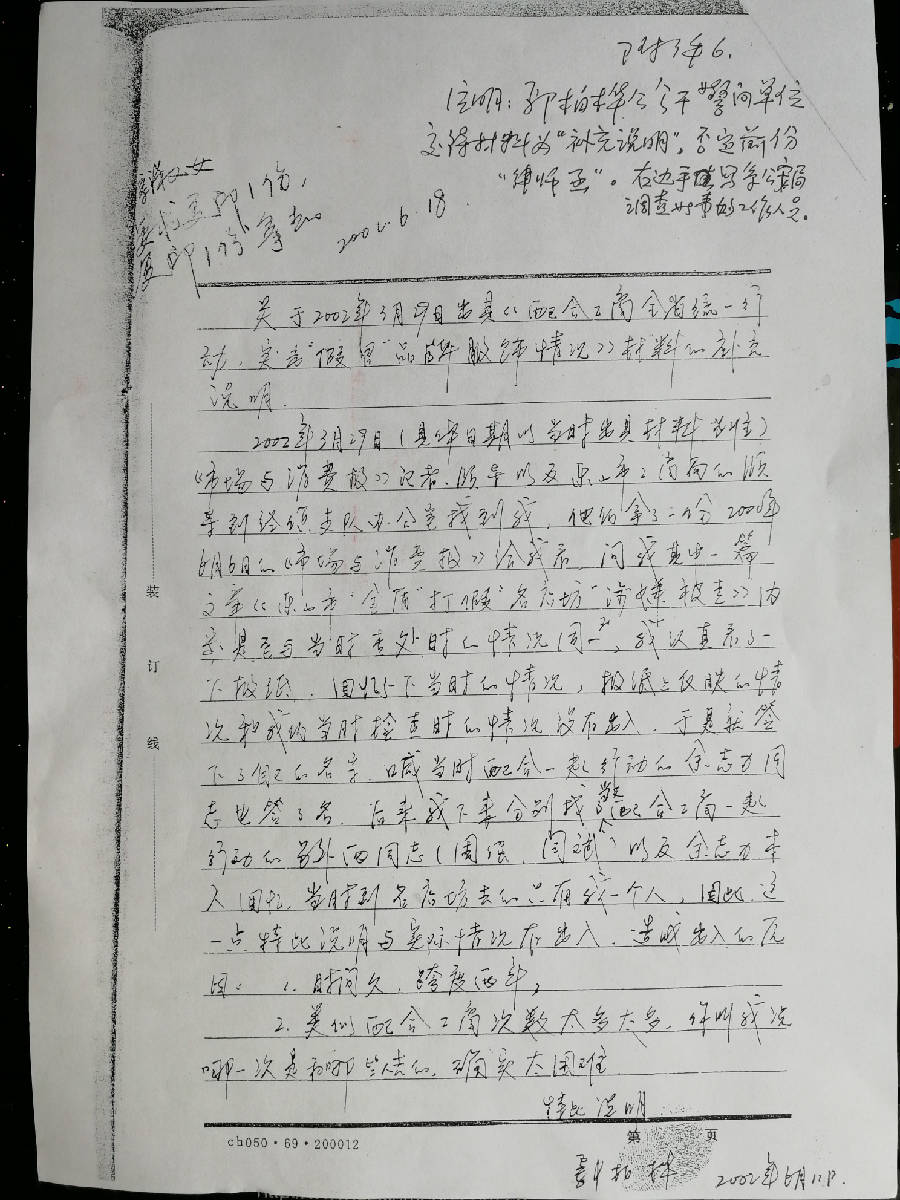 附件6.
注明：郭柏林公安干警向单位
交待材料为“补充说明”，否定前份
“律师函”。右边手填写
调查此事的工作人员。
复印1份，
复印1份拿去。
2002.6.18
关于2002年3月29日出具《配合工商全省统一行
动，突击“假冒”品牌服饰情况》材料的补充
说明.
2002年3月29日（具体日期以当时出具材料为准）
《市场与消费报》记者、领导以及乐山市工商局的领
导到经侦支队办公室找到我，他们拿了一份2000年
6月6日的《市场与消费报》给我看，问我其中一篇
文章《乐山市“金顶”打假“名店坊”涉嫌被查》内
容是否与当时查处时的情况同一，我认真看了一
下报纸，回忆一下当时的情况，报纸上反映的情
况和我们当时检查时的情况没有出入，于是就签
下了自己的名字，喊当时配合一起行动的余志力同
志也签了名。后来我下来分别找当时配合工商一起
行动的另外两同志（周强、闫斌）以及余志力本
人回忆，当时到名店坊去的只有我一个人，因此，这
一点特此说明与实际情况有出入。造成出入的原
因：1、时间久，跨度两年；
2、类似配合工商次数太多太多，你叫我说
哪一次是和哪些人去的，确实太困难
特此说明
装
订
线
ch050·69·200012
第 页
郭柏林 2002年6月11日